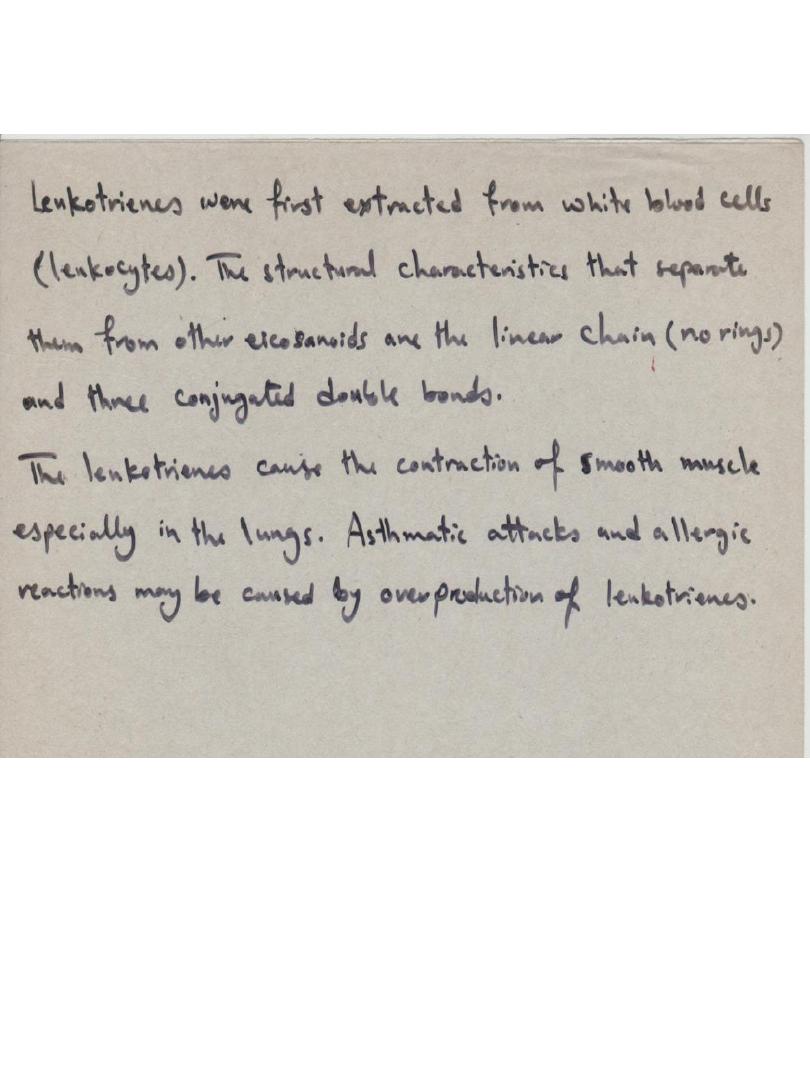 Leukotrienes were first extracted from white blood cells
(leukocytes). The structural characteristics that separate
them from other eicosanoids are the linear chain (no rings)
and three conjugated double bonds.
The leukotrienes cause the contraction of smooth muscle
especially in the lungs. Asthmatic attacks and allergic
reactions may be caused by overproduction of leukotrienes.